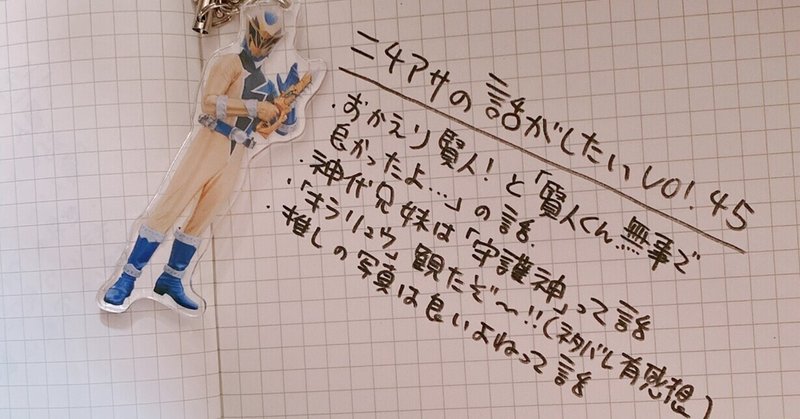 ニチアサの話がしたいvol.45
・おかえり賢人!と「賢人くん、無事で
良かったよ…」の話
・神代兄妹は「守護神」って話
・「キラリュウ」観たぞ〜!!(ネタバレ有感想)
・推しの写真は良いよねって話